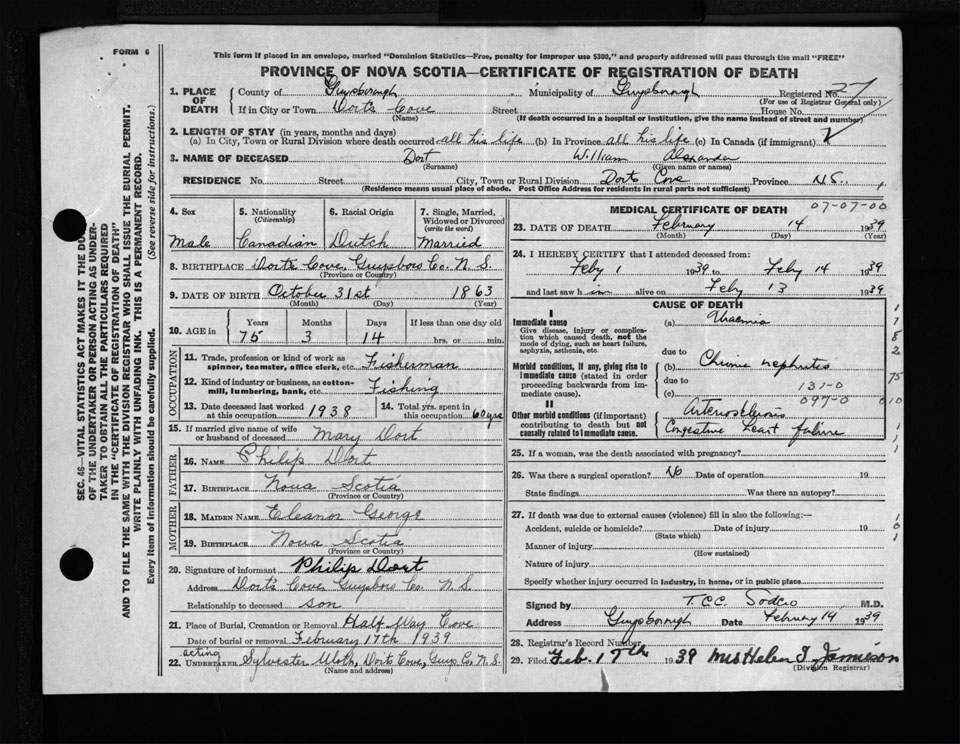 FORM 6
This form if placed in an envelope, marked "Dominion Statistics—Free, penalty for improper use $300," and properly addressed will pass through the mail "FREE"
PROVINCE OF NOVA SCOTIA—CERTIFICATE OF REGISTRATION OF DEATH
SEC. 46—VITAL STATISTICS ACT MAKES IT THE DU
OF THE UNDERTAKER OR PERSON ACTING AS UNDER-
TAKER TO OBTAIN ALL THE PARTICULARS REQUIRED
IN THE "CERTIFICATE OF REGISTRATION OF DEATH"
AND TO FILE THE SAME WITH THE DIVISION REGISTRAR WHO SHALL ISSUE THE BURIAL PERMIT.
WRITE PLAINLY WITH UNFADING INK. THIS IS A PERMANENT RECORD.
Every item of information should be carefully supplied. (See reverse side for instructions.)
1. PLACE OF DEATH
County of Guysborough Municipality of Guysborough Registered No. 27
(For use of Registrar General only)
If in City or Town Dorts Cove Street House No.
(Name) (If death occurred in a hospital or institution, give the name instead of street and number)
2. LENGTH OF STAY (in years, months and days)
(a) In City, Town or Rural Division where death occurred all his life (b) In Province all his life (c) In Canada (if immigrant)
3. NAME OF DECEASED Dort William Alexander
(Surname) (Given name or names)
RESIDENCE No. Street City, Town or Rural Division Dorts Cove Province N.S.
(Residence means usual place of abode. Post Office Address for residents in rural parts not sufficient)
4. Sex Male
5. Nationality (Citizenship) Canadian
6. Racial Origin Dutch
7. Single, Married, Widowed or Divorced (write the word) Married
8. BIRTHPLACE Dorts Cove, Guysboro Co. N.S.
(Province or Country)
9. DATE OF BIRTH October 31st 1863
(Month) (Day) (Year)
10. AGE in Years 75 Months 3 Days 14 If less than one day old hrs. or min.
OCCUPATION
11. Trade, profession or kind of work as spinner, teamster, office clerk, etc. Fisherman
12. Kind of industry or business, as cotton-mill, lumbering, bank, etc. Fishing
13. Date deceased last worked at this occupation 1938
14. Total yrs. spent in this occupation 60 yrs
15. If married give name of wife or husband of deceased Mary Dort
FATHER
16. NAME Philip Dort
17. BIRTHPLACE Nova Scotia
(Province or Country)
MOTHER
18. MAIDEN NAME Eleanor George
19. BIRTHPLACE Nova Scotia
(Province or Country)
20. Signature of informant Philip Dort
Address Dorts Cove, Guysboro Co. N.S.
Relationship to deceased son
21. Place of Burial, Cremation or Removal Half Way Cove
Date of burial or removal February 17th 1939
acting
22. UNDERTAKER Sylvester Dorts Cove, Guys Co. N.S.
(Name and address)
MEDICAL CERTIFICATE OF DEATH 07-07-00
23. DATE OF DEATH February 14 1939
(Month) (Day) (Year)
24. I HEREBY CERTIFY that I attended deceased from:
Feby 1 1939 to Feby 14 1939
and last saw him alive on Feby 13 1939
CAUSE OF DEATH
I
Immediate cause (a) Uraemia
Give disease, injury or complication which caused death, not the mode of dying, such as heart failure, asphyxia, asthenia, etc.
due to
Morbid conditions, if any, giving rise to immediate cause (stated in order proceeding backwards from immediate cause). (b) Chronic nephritis
due to 131-0
(c) 097-0
II
Other morbid conditions (if important) contributing to death but not causally related to immediate cause. Arteriosclerosis
Congestive heart failure
1
7
8
2
75
010
1
1
1
25. If a woman, was the death associated with pregnancy?
26. Was there a surgical operation? No Date of operation 19
State findings Was there an autopsy?
27. If death was due to external causes (violence) fill in also the following:—
Accident, suicide or homicide? Date of injury 19
(State which)
Manner of injury
(How sustained)
Nature of injury
Specify whether injury occurred in industry, in home, or in public place
1
0
1
Signed by T.C.C. M.D.
Address Guysborough Date February 14 1939
28. Registrar's Record Number
29. Filed Feb. 17th 1939 Mrs Helen J. Jamieson
(Division Registrar)